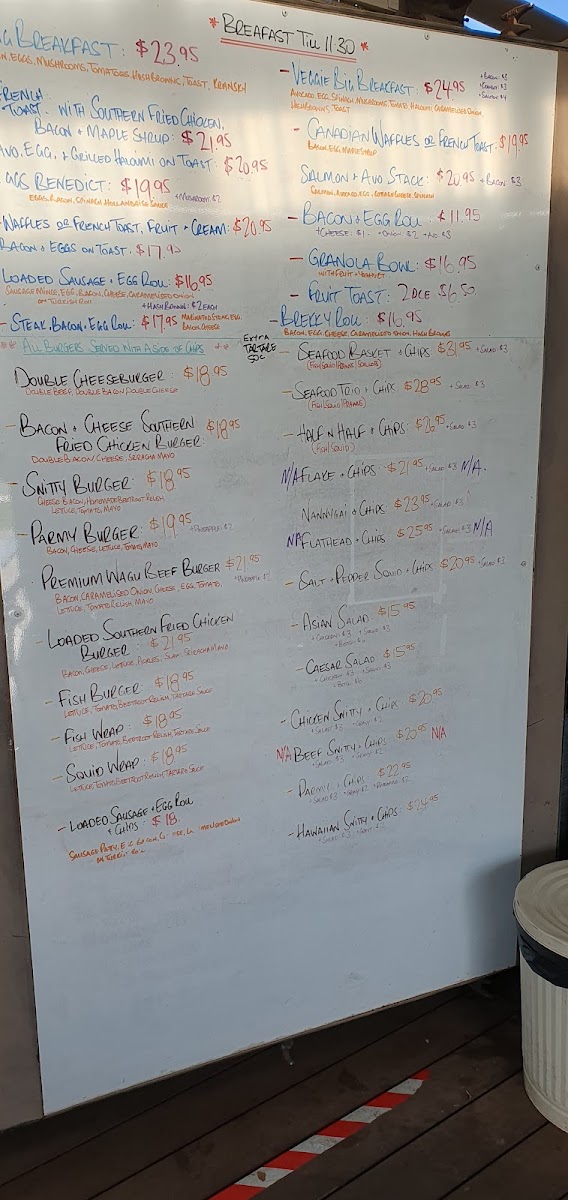 * BREAFAST TILL 11.30 *
BREAKFAST: $23.95
EGGS, MUSHROOMS, TOMATOES, HASHBROWNS, TOAST, KRANSKY
FRENCH
TOAST WITH SOUTHERN FRIED CHICKEN,
BACON + MAPLE SYRUP: $21.95
AVO, EGG, + GRILLED HALOUMI ON TOAST: $20.95
EGGS BENEDICT: $19.95 + MUSHROOM: $2
EGGS, BACON, SPINACH HOLLANDAISE SAUCE
WAFFLES OR FRENCH TOAST, FRUIT + CREAM: $20.95
BACON + EGGS ON TOAST: $17.95
LOADED SAUSAGE + EGG ROLL: $16.95
SAUSAGE MINCE, EGG, BACON, CHEESE, CARAMELISED ONION
ON TURKISH ROLL + HASH BROWN: $2 EACH
- STEAK, BACON, EGG ROLL: $17.95 MARINATED STEAK, EGG,
BACON, CHEESE
- VEGGIE BIG BREAKFAST: $24.95
+ BACON: $3
AVOCADO, EGG, SPINACH, MUSHROOMS, TOMATO, HALOUMI, CARAMELISED ONION,
HASHBROWNS, TOAST
- CANADIAN WAFFLES OR FRENCH TOAST: $19.95
BACON, EGG, MAPLE SYRUP
SALMON + AVO STACK: $20.95 + BACON: $3
SALMON, AVOCADO, EGG, COTTAGE CHEESE, SPINACH
- BACON + EGG ROLL: $11.95
+ CHEESE: $1 + ONION: $2 + AVO: $3
- GRANOLA BOWL: $16.95
WITH FRUIT + YOGHURT
- FRUIT TOAST: 2 PCE $6.50
- BREKKY ROLL: $16.95
BACON, EGG, CHEESE, CARAMELISED ONION, HASH BROWNS
** ALL BURGERS SERVED WITH A SIDE OF CHIPS **
EXTRA
TARTARE
50C
DOUBLE CHEESEBURGER: $18.95
DOUBLE BEEF, DOUBLE BACON, DOUBLE CHEESE
- BACON + CHEESE SOUTHERN $18.95
FRIED CHICKEN BURGER:
DOUBLE BACON, CHEESE, SRIRACHA MAYO
- SNITTY BURGER: $18.95
CHEESE, BACON, HOMEMADE BEETROOT RELISH
LETTUCE, TOMATO, MAYO
- PARMY BURGER: $19.95 + PINEAPPLE: $2
BACON, CHEESE, LETTUCE, TOMATO, MAYO
PREMIUM WAGU BEEF BURGER $21.95
BACON, CARAMELISED ONION, CHEESE, EGG, TOMATO, + PINEAPPLE $2
LETTUCE, TOMATO RELISH, MAYO
- LOADED SOUTHERN FRIED CHICKEN
BURGER - $21.95
BACON, CHEESE, LETTUCE, PICKLES, SLAW, SRIRACHA MAYO
- FISH BURGER: $18.95
LETTUCE, TOMATO, BEETROOT RELISH, TARTARE SAUCE
- FISH WRAP: $18.95
LETTUCE, TOMATO, BEETROOT RELISH, TARTARE SAUCE
- SQUID WRAP: $18.95
LETTUCE, TOMATO, BEETROOT RELISH, TARTARE SAUCE
- LOADED SAUSAGE + EGG ROLL
+ CHIPS: $18.
SAUSAGE PATTY, EGG, BACON
- SEAFOOD BASKET + CHIPS: $31.95 + SALAD: $3
(FISH/SQUID/PRAWNS/SCALLOPS)
- SEAFOOD TRIO + CHIPS: $28.95 + SALAD: $3
(FISH/SQUID/PRAWNS)
- HALF N HALF + CHIPS: $26.95 + SALAD: $3
(FISH/SQUID)
N/A FLAKE + CHIPS: $21.95 + SALAD: $3 N/A.
NANNYGAI + CHIPS: $23.95 + SALAD: $3
N/A FLATHEAD + CHIPS: $25.95 + SALAD $3 N/A
- SALT + PEPPER SQUID + CHIPS $20.95 + SALAD: $3
- ASIAN SALAD $15.95
+ CHICKEN: $3 + SQUID: $3
- CAESAR SALAD: $15.95
+ CHICKEN: $3 + SQUID: $3
- CHICKEN SNITTY + CHIPS: $20.95
+ SALAD: $3 + GRAVY $2
N/A BEEF SNITTY + CHIPS: $20.95 N/A
+ SALAD: $3 + GRAVY: $2
- PARMY + CHIPS: $22.95
+ SALAD: $3
- HAWAIIAN SNITTY + CHIPS: $24.95
+ SALAD: $3 + GRAVY: $2